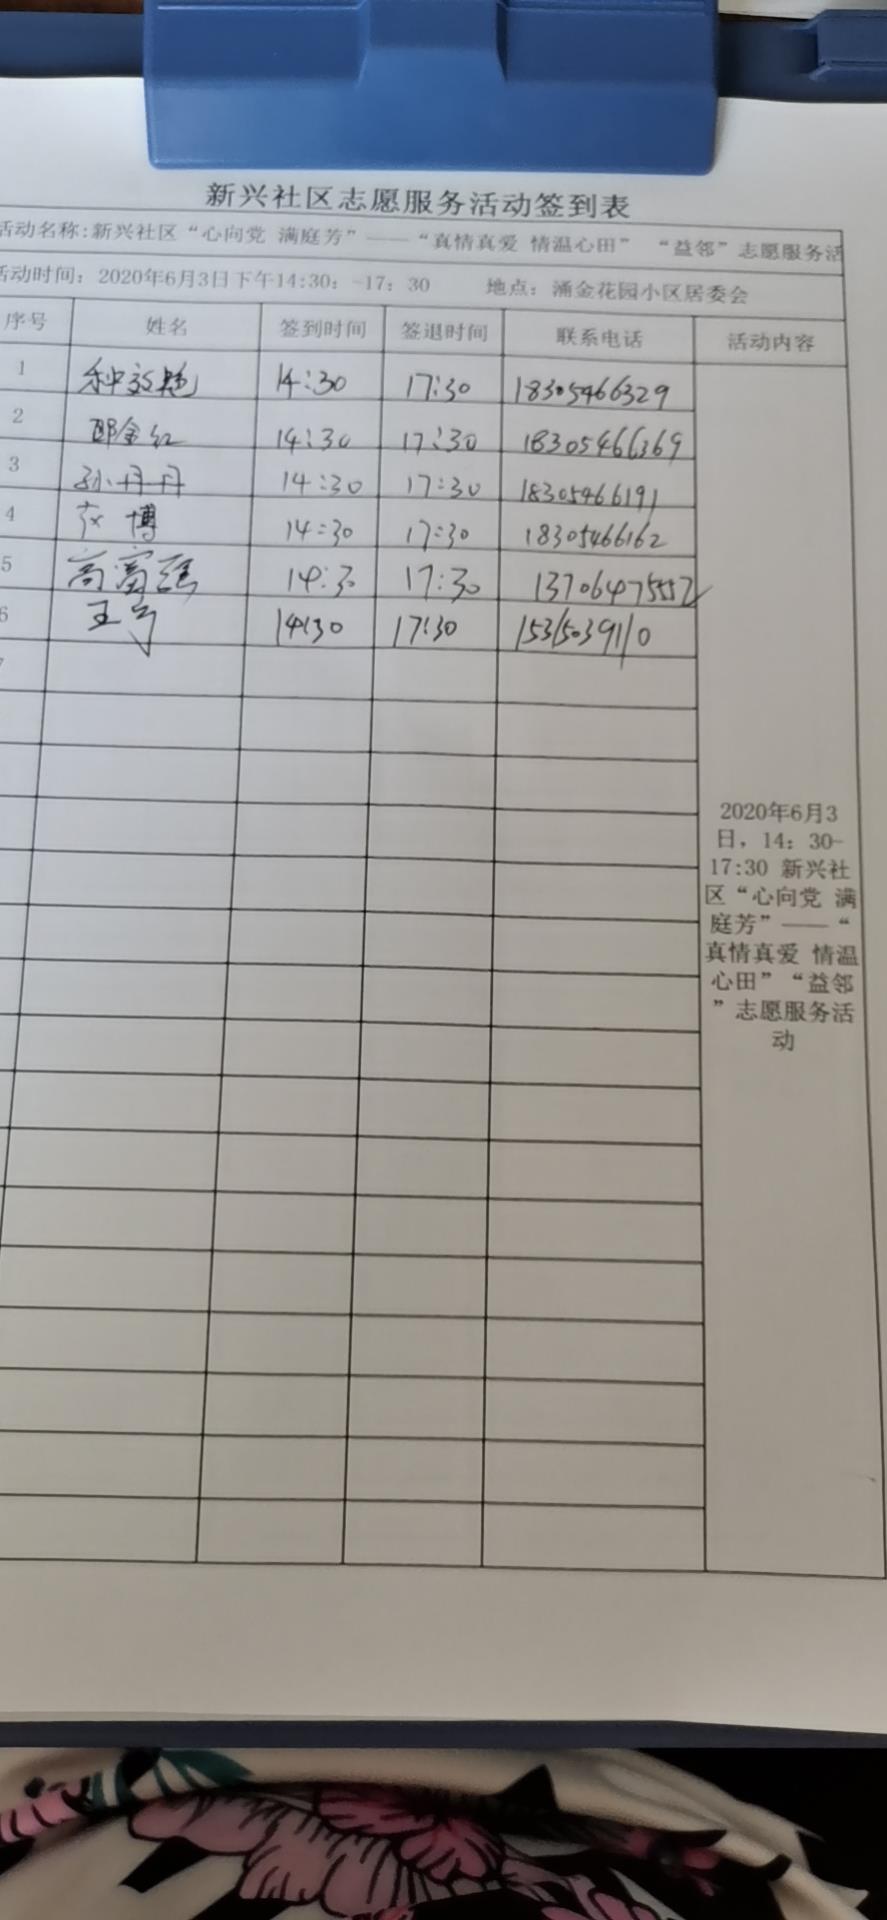 新兴社区志愿服务活动签到表
活动名称:新兴社区“心向党 满庭芳”——“真情真爱 情温心田” “益邻”志愿服务活
活动时间：2020年6月3日下午14:30：-17：30 地点：涌金花园小区居委会
序号 姓名 签到时间 签退时间 联系电话 活动内容
1 种效艳 14:30 17:30 18305466329
2 邵金红 14:30 17:30 18305466369
3 孙丹丹 14:30 17:30 18305466191
4 博 14:30 17:30 18305466162
5 高富强 14:3 17:30 13706475552
6 王 14:30 17:30 15315039110
7
2020年6月3
日，14：30-
17:30 新兴社
区“心向党 满
庭芳”——“
真情真爱 情温
心田”“益邻
”志愿服务活
动